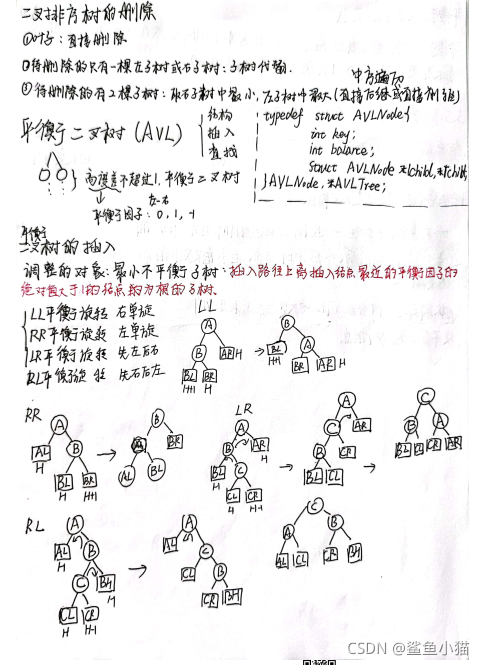 二叉排序树的删除
①叶子：直接删除
②待删除的只有一棵左子树或右子树：子树代替.
③待删除的有2棵子树：取右子树中最小，左子树中最大(直接后继或直接前驱)
中序遍历
平衡二叉树(AVL)
结构
插入
查找
typedef struct AVLNode{
int key;
int balance;
struct AVLNode *lchild,*rchild;
}AVLNode,*AVLTree;
高度差不超过1，平衡二叉树
左-右
平衡因子：0,1,-1
平衡
二叉树的插入
调整的对象：最小不平衡子树：插入路径上离插入结点最近的平衡因子的
绝对值大于1的结点的为根的子树.
LL平衡旋转 右单旋
RR平衡旋转 左单旋
LR平衡旋转 先左后右
RL平衡旋转 先右后左
LL
A
B AR H
BL BR
H+1 H
B
BL A
H+1
BR AR H
RR
A
AL B
H
BL BR
H H+1
B
A BR
AL BL
LR
A
B AR
H
BL C
H
CL CR
H H-1
A
C AR
B CR
BL CL
C
B A
BL CL CR AR
RL
A
AL B
H
C BR
H
CL CR
H H-1
A
AL C
CL B
CR BR
C
A B
AL CL CR BR
CSDN @鲨鱼小猫